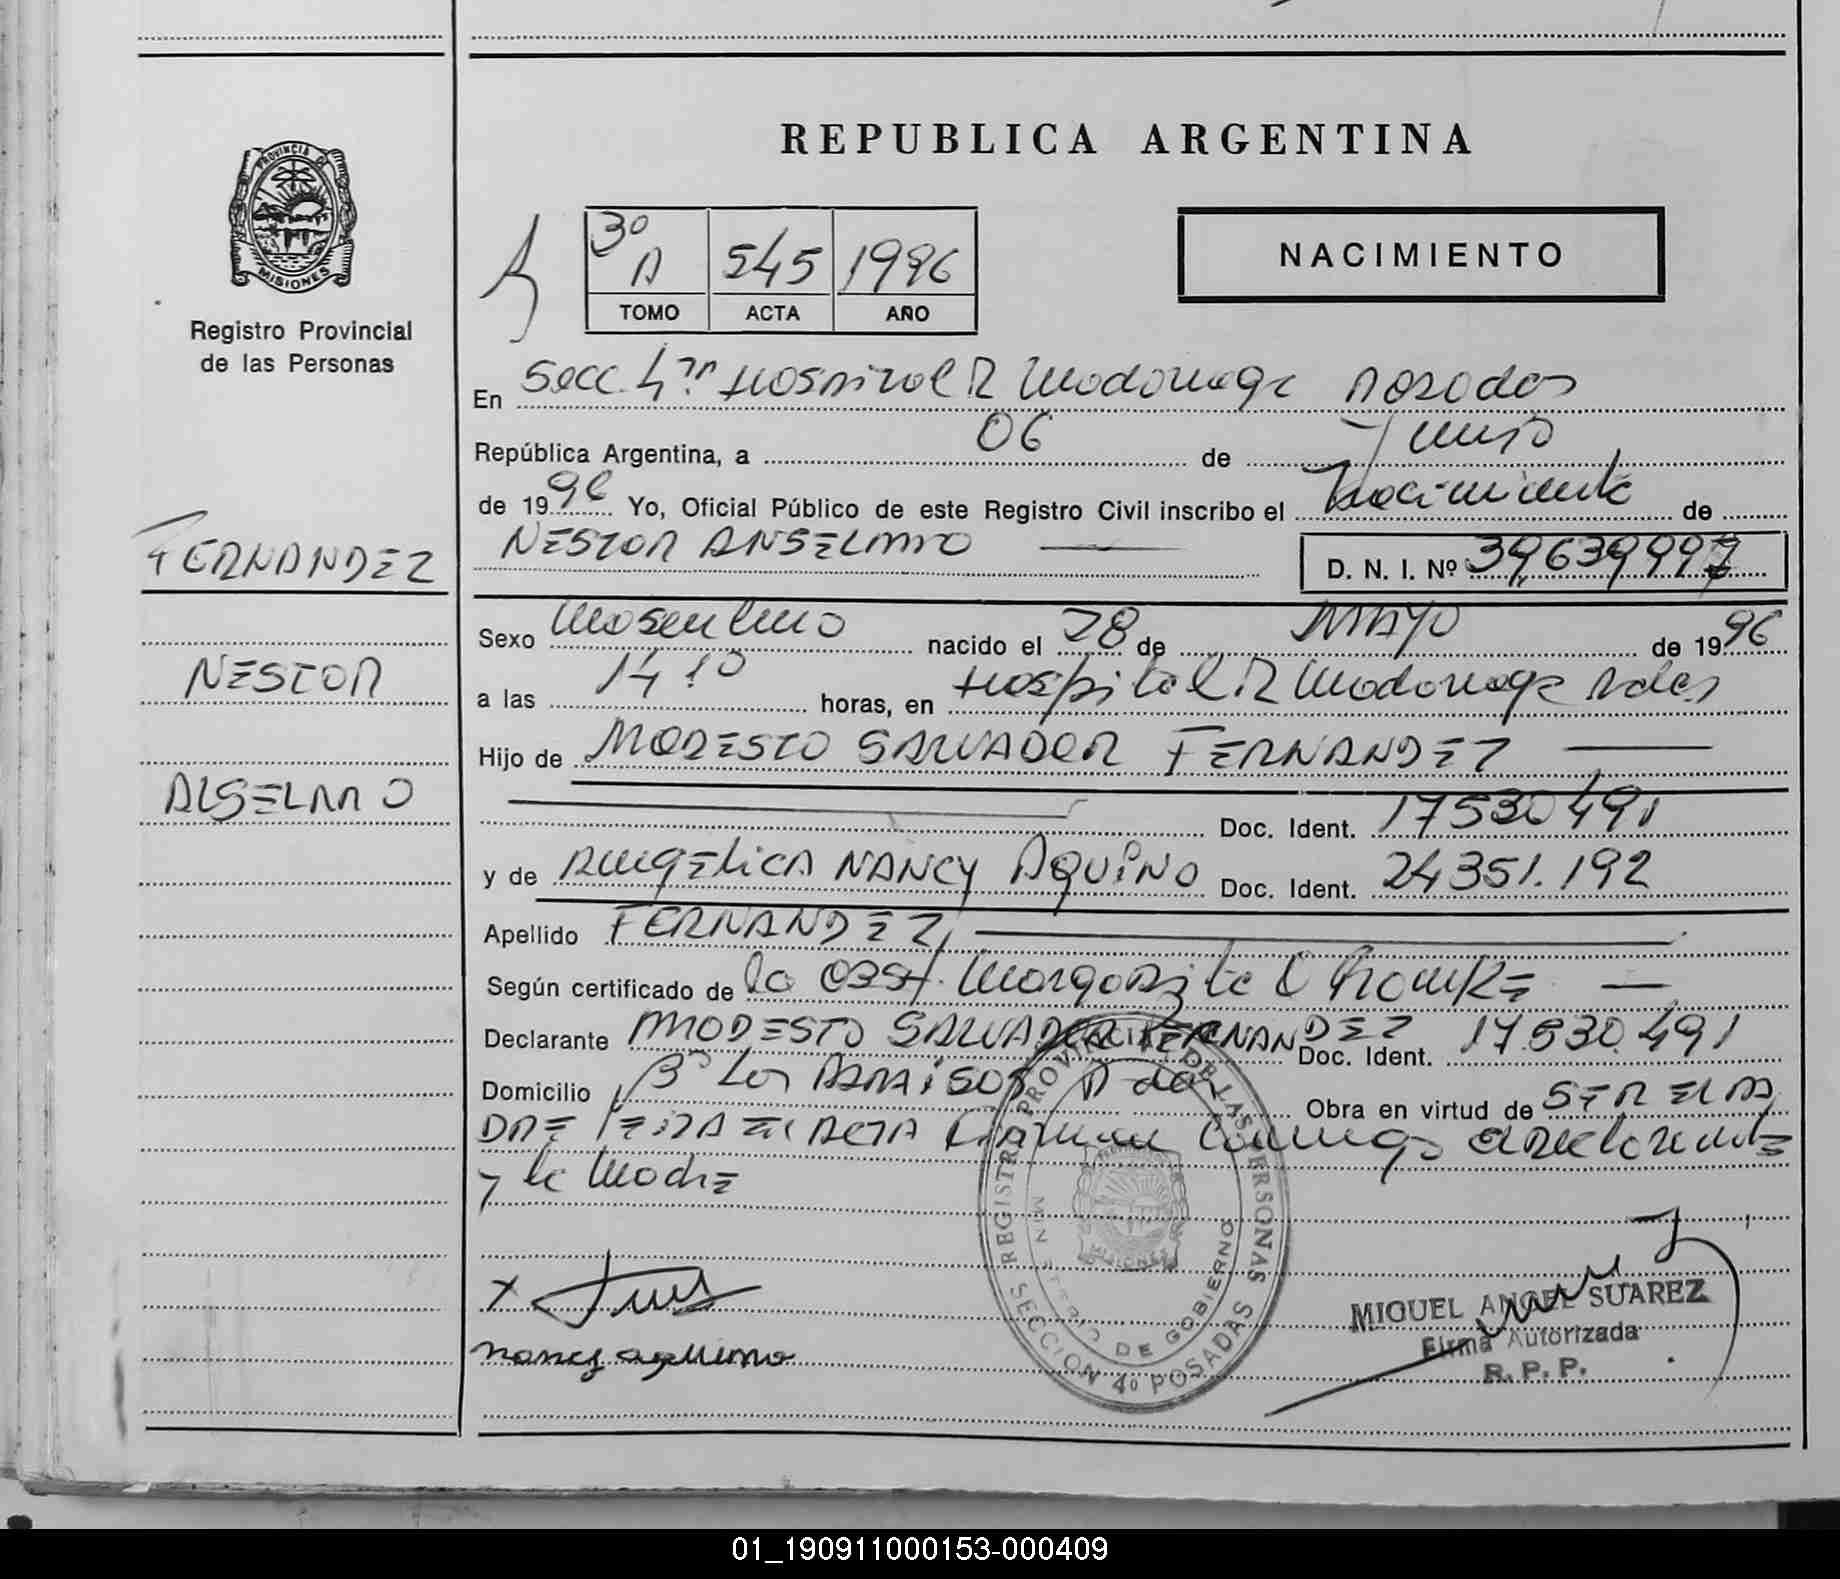 REPUBLICA ARGENTINA
PROVINCIA DE
MISIONES
Registro Provincial
de las Personas
3º A 545 1996
TOMO ACTA AÑO
NACIMIENTO
En Secc. 4ta Hospital R Madariaga Posadas
República Argentina, a 06 de Junio
de 1996 Yo, Oficial Público de este Registro Civil inscribo el Nacimiento de
NESTOR ANSELMO D. N. I. Nº 39639997
FERNANDEZ
NESTOR
ALSELMO
Sexo Masculino nacido el 28 de MAYO de 1996
a las 14 10 horas, en Hospital R Madariaga Pdas
Hijo de MODESTO SALVADOR FERNANDEZ
Doc. Ident. 17530491
y de ANGELICA NANCY AQUINO Doc. Ident. 24351.192
Apellido FERNANDEZ
Según certificado de la Obst. Margarita
Declarante MODESTO SALVADOR FERNANDEZ Doc. Ident. 17530.491
Domicilio Bº Los PARAISOS Pdas Obra en virtud de SER EL PA
DRE LEIDA EL ACTA Firman Conmigo el declarante
y la Madre
REGISTRO PROVINCIAL DE LAS PERSONAS
MINISTERIO DE GOBIERNO
MISIONES
SECCION 4º POSADAS
X
Nancy aquino
MIGUEL ANGEL SUAREZ
Firma Autorizada
R. P. P.
01_190911000153-000409